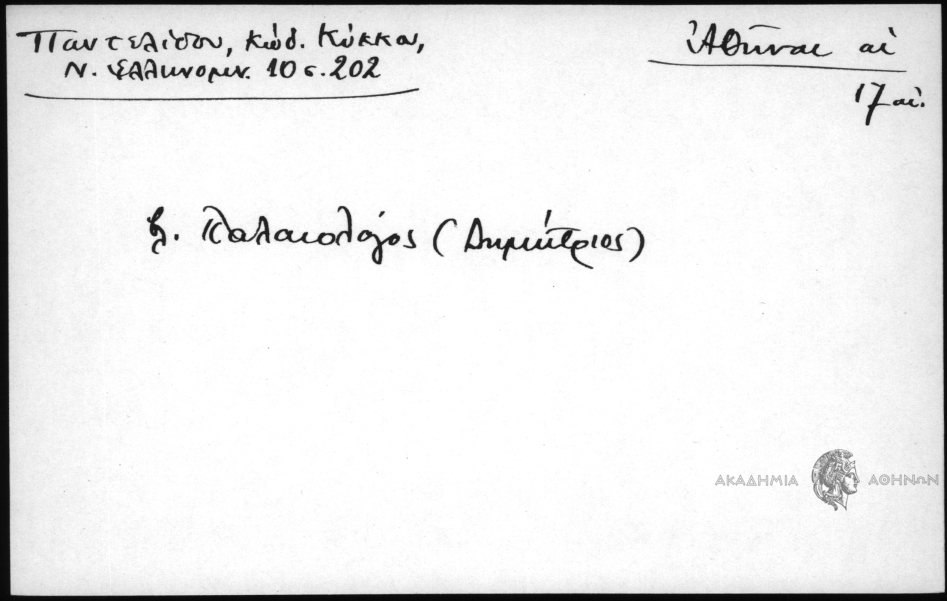 Παντελίδου, κώδ. Κύκκου,
Ν. Ἑλληνομν. 10 σ. 202
Ἀθῆναι αἱ
17 αἰ.
ἐ. Παλαιολόγος (Δημήτριος)
ΑΚΑΔΗΜΙΑ ΑΘΗΝΩΝ